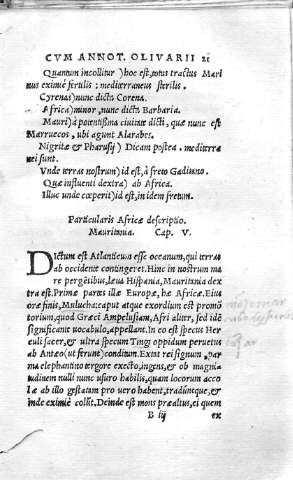 CVM ANNOT. OLIVARII 21
Quantum incolitur) hoc est, totus tractus Mari
nus eximiè fertilis: mediterraneus sterilis.
Cyrenas) nunc dicta Corena.
Africa) minor, nunc dicta Barbaria.
Mauri) à potentißima ciuitate dicti, quæ nunc est
Marruecos, ubi agunt Alarabes.
Nigritæ & Pharusij) Dicam postea. mediterra
nei sunt.
Vnde terras nostrum) id est, à freto Gaditano.
Quæ influenti dextra) ab Africa.
Illuc unde cœperit) id est, in idem fretum.
Particularis Africæ descriptio.
Mauritania. Cap. V.
Dictum est Atlanticum esse oceanum, qui terras
ab occidente contingeret. Hinc in nostrum ma
re pergētibus, lęua Hispania, Mauritania dex
tra est. Primæ partes illæ Europæ, hæ Africæ. Eius
oræ finis, Mulucha: caput atque exordium est promon
torium, quod Græci Ampelusiam, Afri aliter, sed idē
significante uocabulo, appellant. In eo est specus Her
culi sacer, & ultra specum Tingi oppidum peruetus
ab Antæo (ut ferunt) conditum. Extat rei signum, par
ma elephantino tergore execta, ingens, & ob magni
tudinem nulli nunc usuro habilis, quam locorum acco
læ ab illo gestatam pro uero habent, tradūntque, &
inde eximiè colūt. Deinde est mons præaltus, ei quem
B iij ex